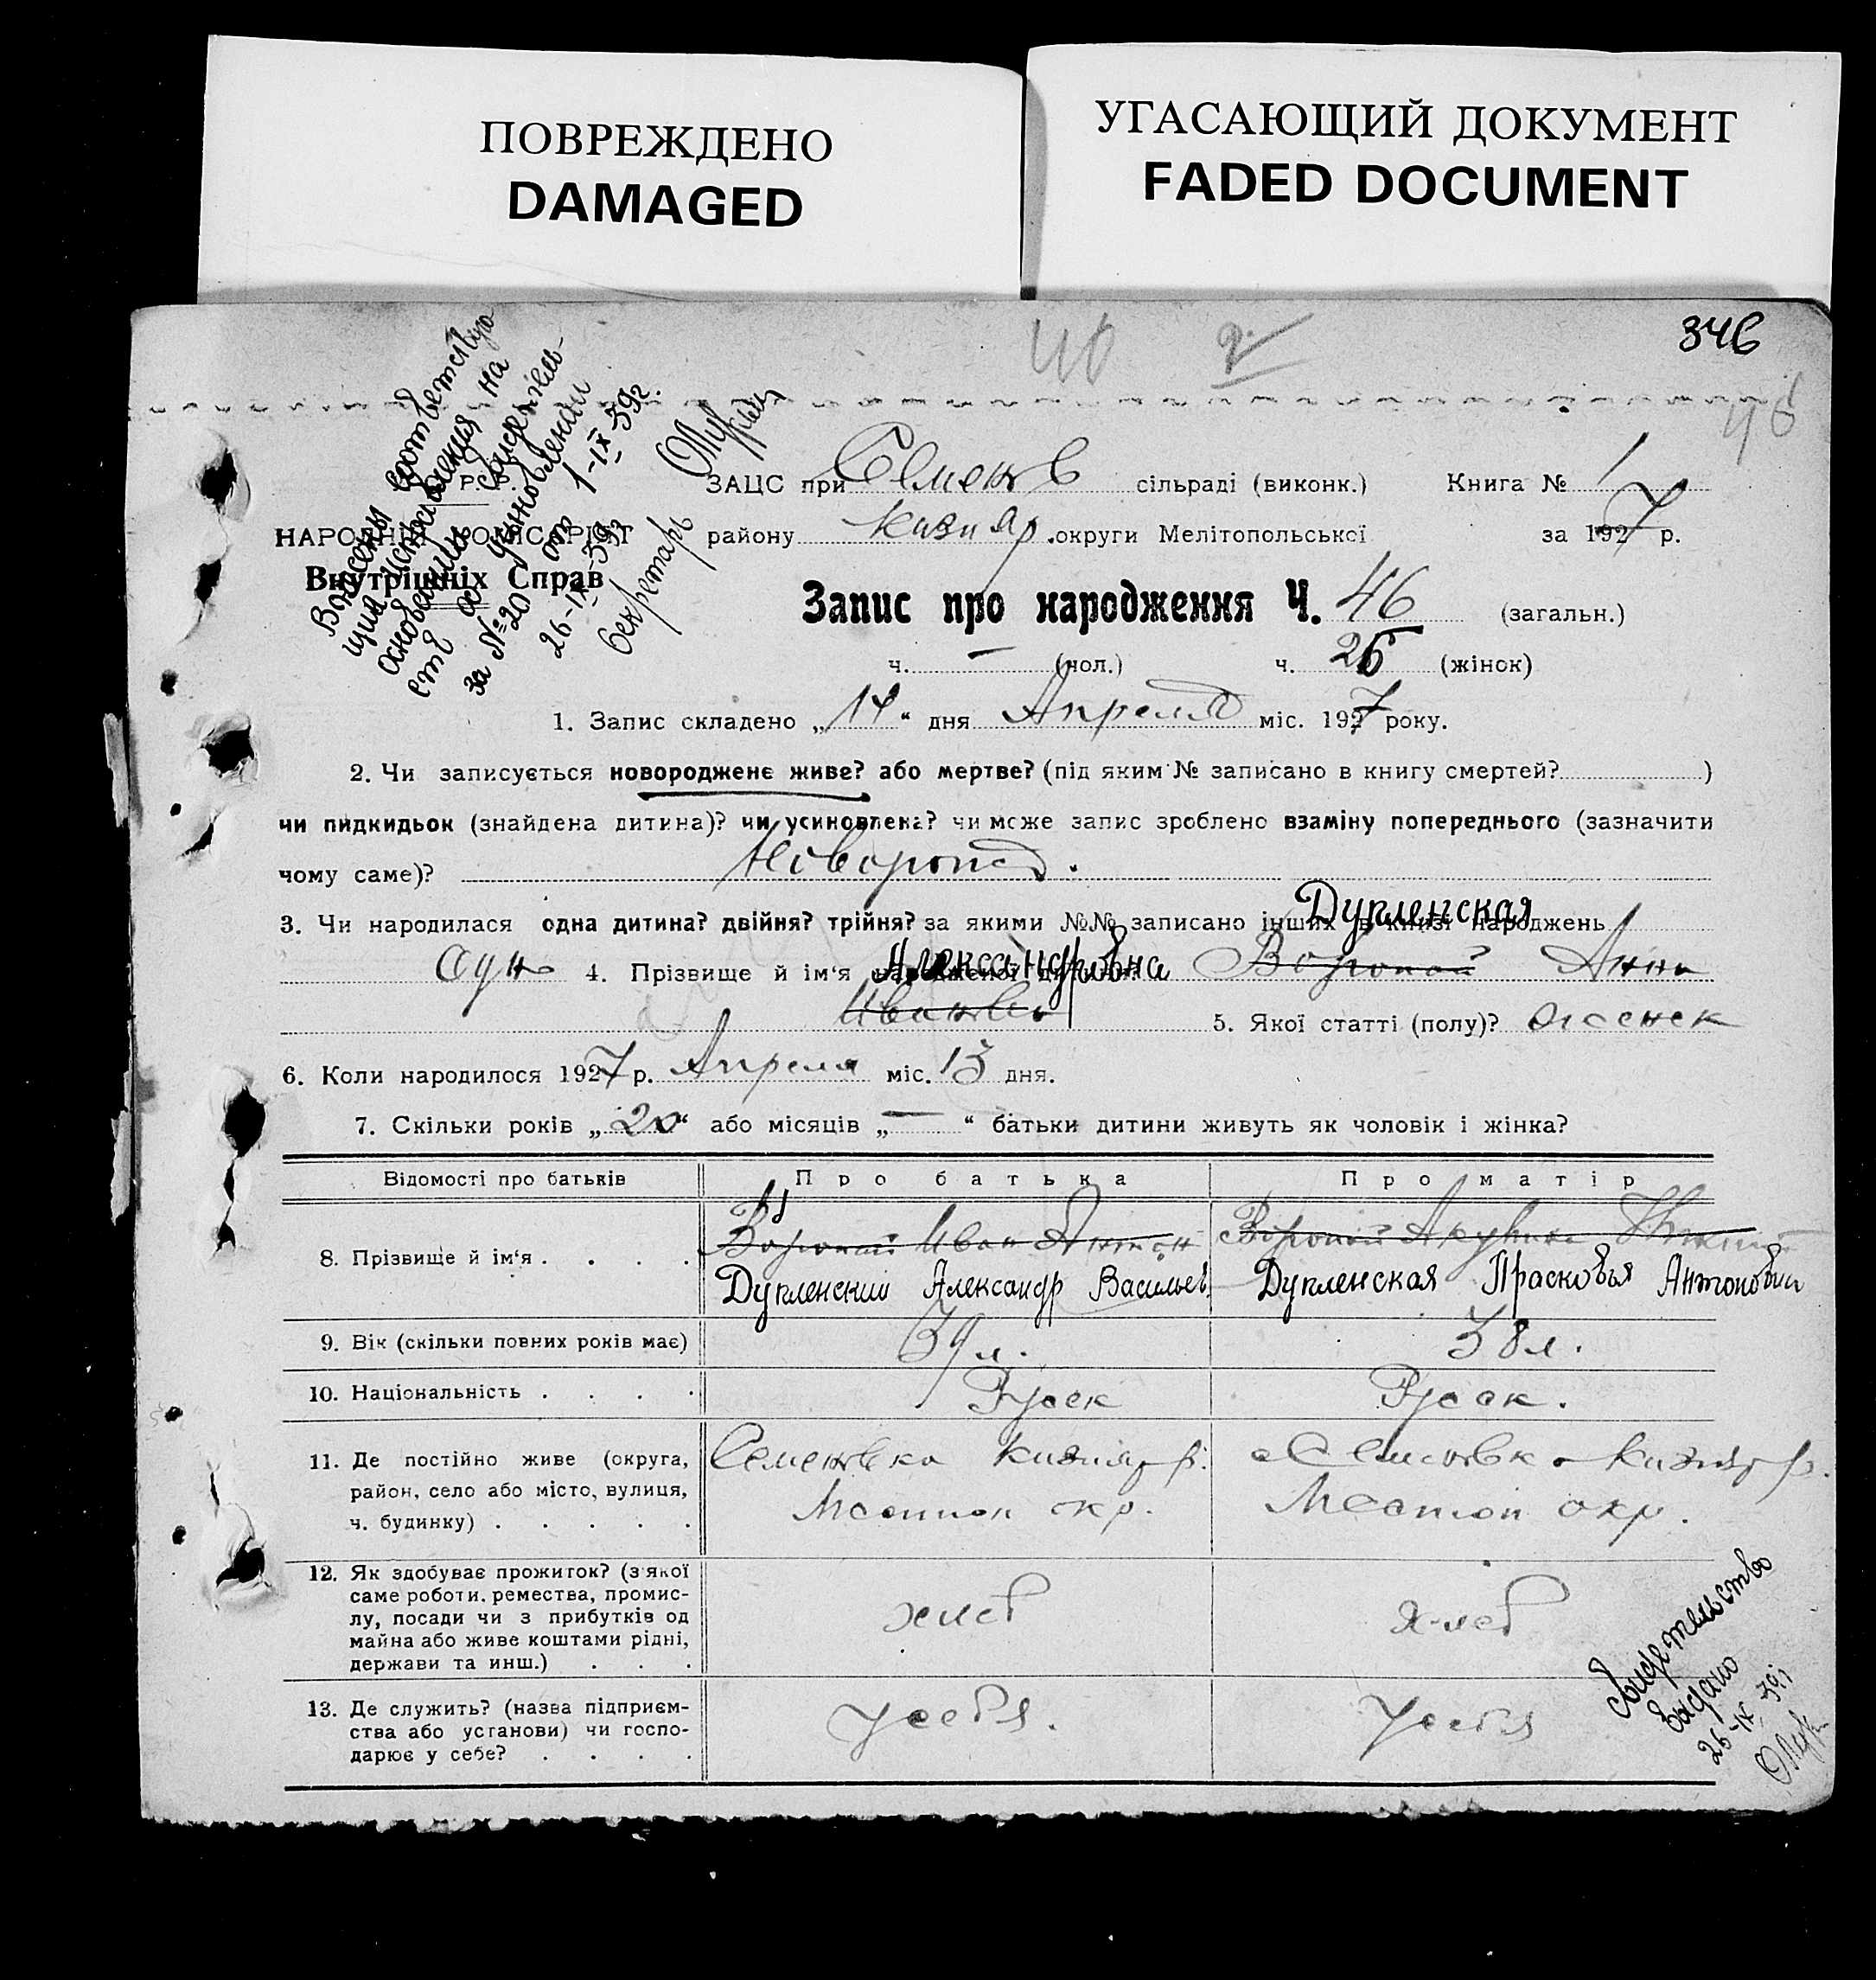 ПОВРЕЖДЕНО
DAMAGED
УГАСАЮЩИЙ ДОКУМЕНТ
FADED DOCUMENT
346
46
Внесены соответствую
щия исправления на
основании свидетель-
ств об усыновлении
за №20 от 1-IX-39г.
26-IX-39г
Секретарь
Р.
НАРОДНІЙ КОМІСАРІЯТ
Внутрішніх Справ
ЗАЦС при Семенов сільраді (виконк.) Книга № 1
району Кизияр. округи Мелітопольської за 1927 р.
Запис про народження Ч. 46 (загальн.)
ч. — (чол.) ч. 26 (жінок)
1. Запис складено „14“ дня Апреля міс. 1927 року.
2. Чи записується новороджене живе? або мертве? (під яким № записано в книгу смертей? )
чи пидкидьок (знайдена дитина)? чи усиновлена? чи може запис зроблено взаміну попереднього (зазначити
чому саме)?
3. Чи народилася одна дитина? двійня? трійня? за якими №№ записано інших в книзі народжень
Дупленская
одн 4. Прізвище й ім‘я народженої дитини? Александровна Воропай Анна
Ивановн 5. Якої статті (полу)? женск
6. Коли народилося 1927 р. Апреля міс. 13 дня.
7. Скільки років „20“ або місяців „—“ батьки дитини живуть як чоловік і жінка?
Відомості про батьків Про батька Про матір
8. Прізвище й ім‘я . . . . Воропай Иван Антон Воропай
Дупленский Александр Васильев. Дупленская Прасковья Антоновна
9. Вік (скільки повних років має) 39 л. 38 л.
10. Національність . . . . Руск Руск.
11. Де постійно живе (округа, район, село або місто, вулиця, ч. будинку) . . . . .
Семеновка Кизияр р. Семеновка Кизияр р.
Мелитоп окр. Мелитоп окр.
12. Як здобуває прожиток? (з якої
саме роботи, ремества, промис-
лу, посади чи з прибутків од
майна або живе коштами рідні,
держави та инш.) . . .
хлеб хлеб
13. Де служить? (назва підприєм-
ства або установи) чи госпо-
дарює у себе? . . . .
у себя. у себя
свидетельство
выдано
26-IX-39г